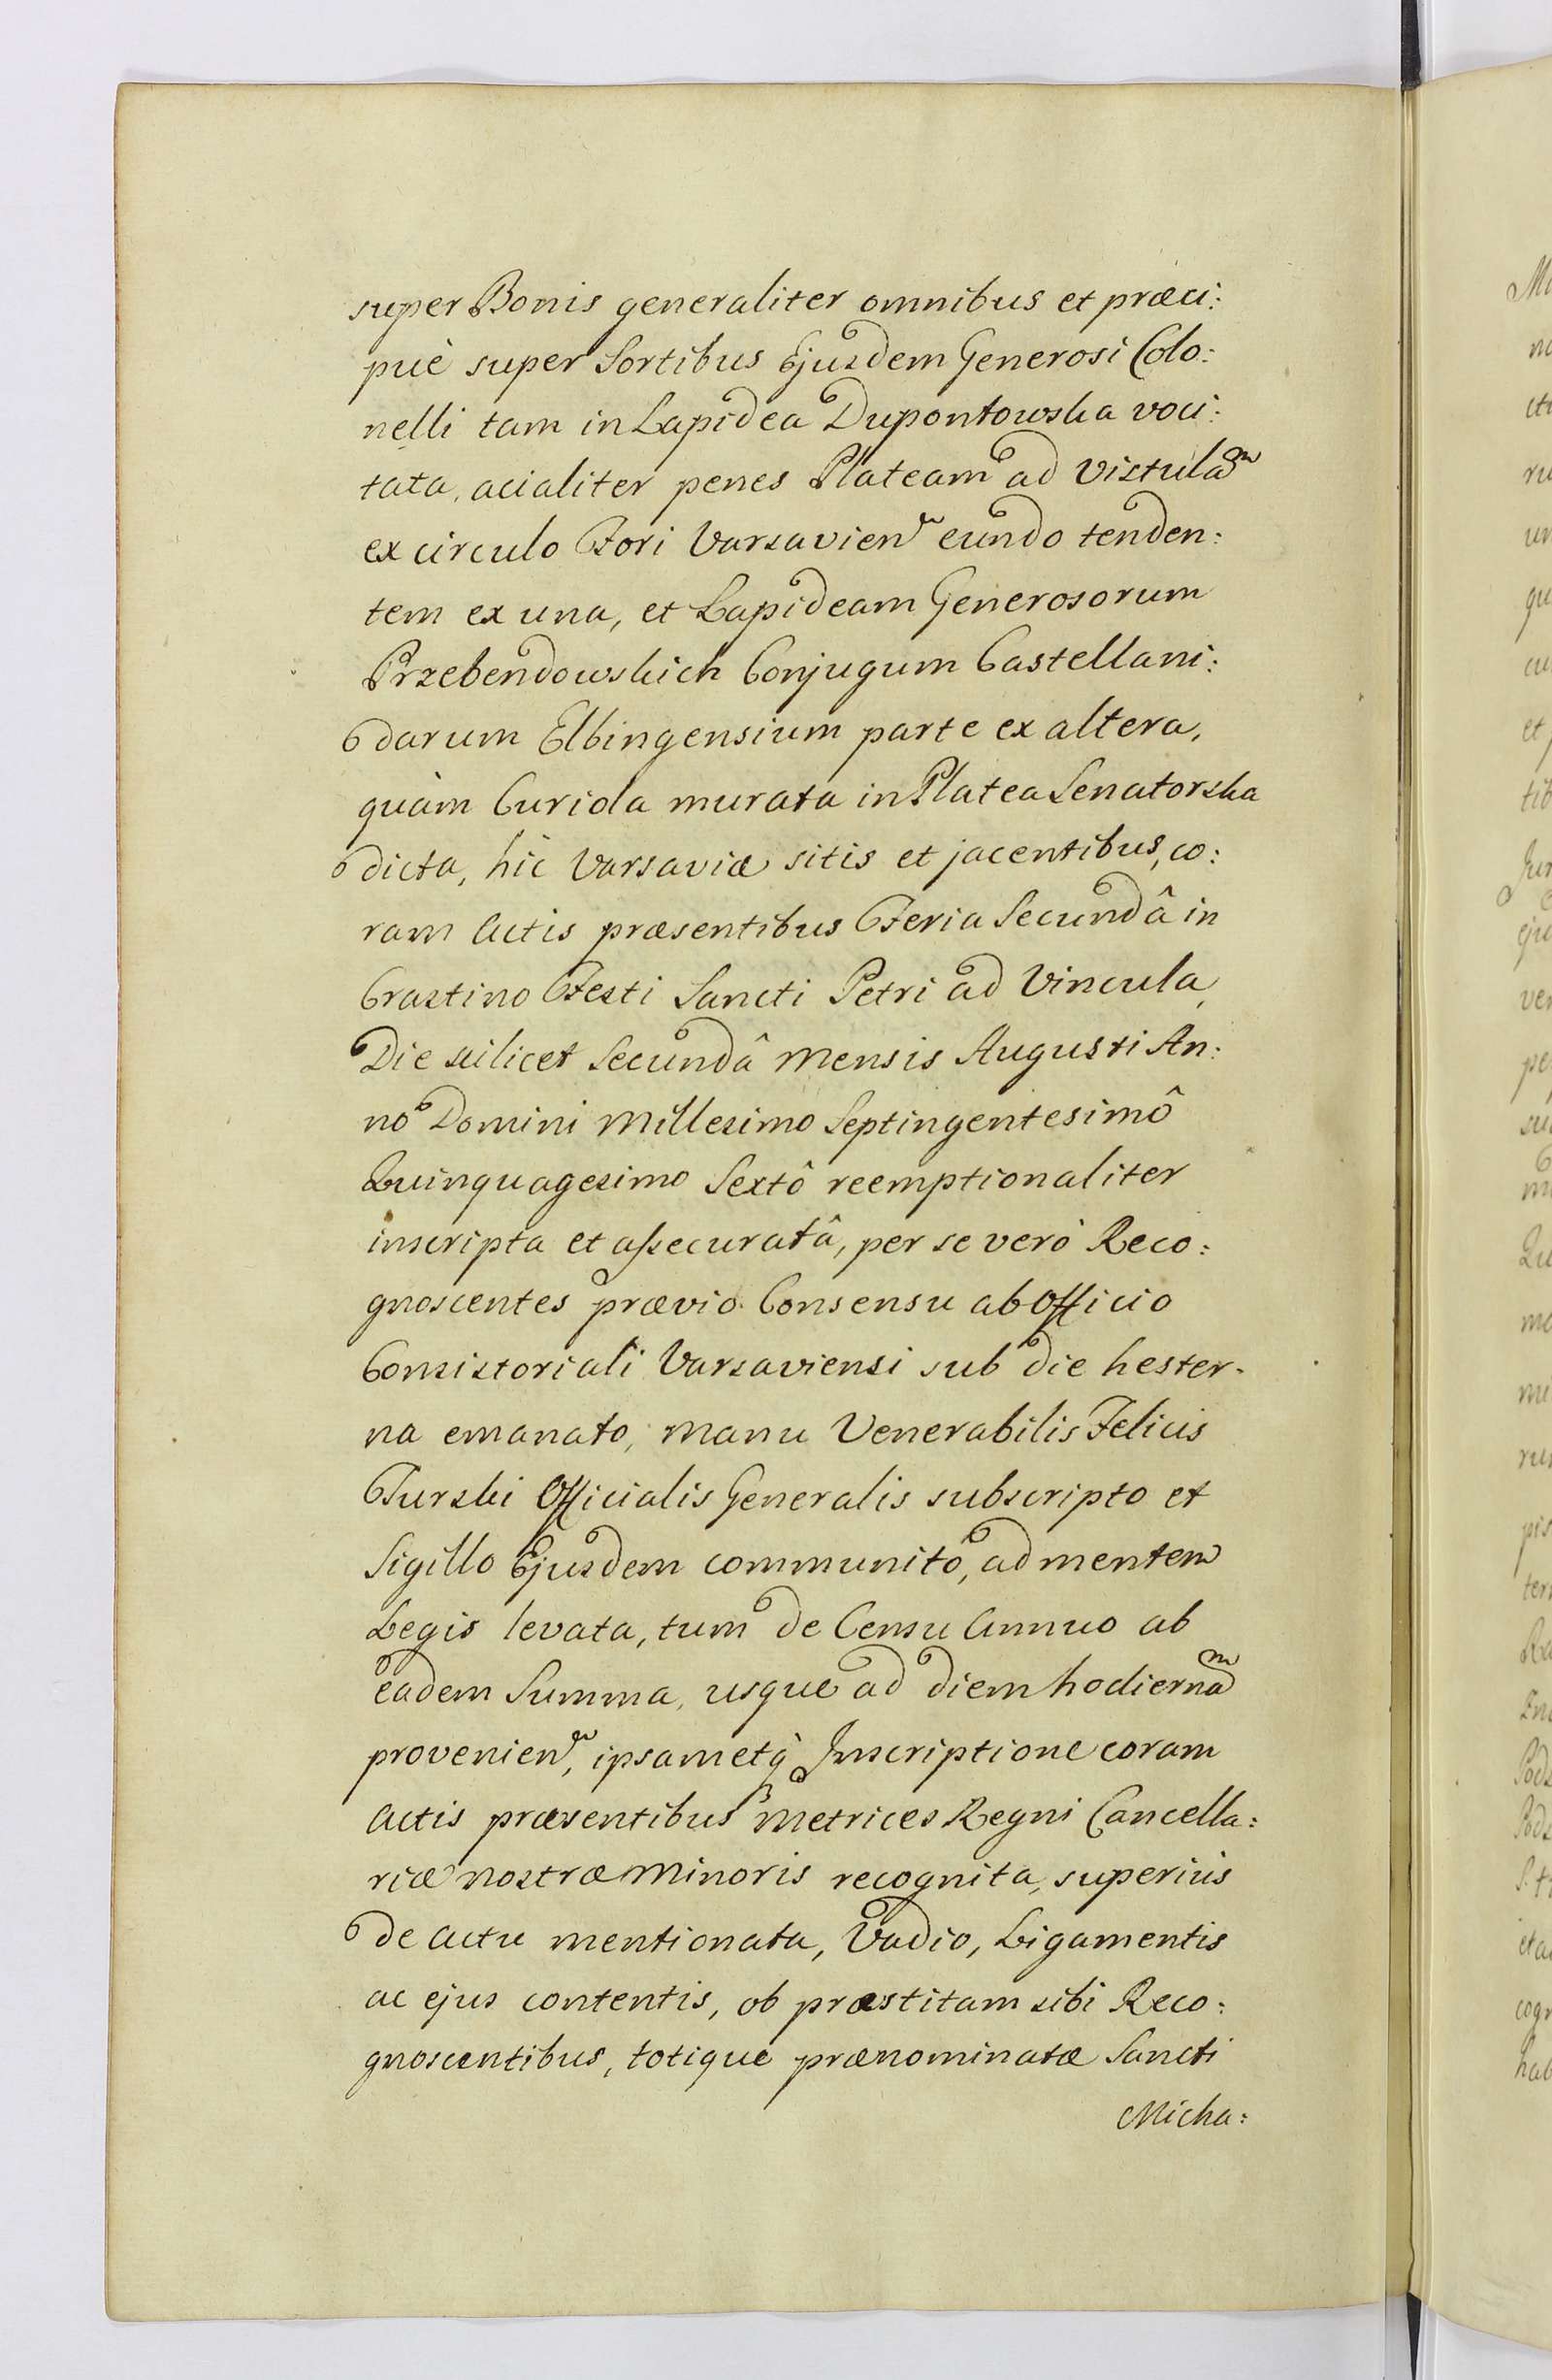 super Bonis generaliter omnibus et præci:
püè super Sortibus Ejusdem Generosi Colo:
nelli tam in Lapidea Dupontowska voci:
tata, acialiter penes Plateam ad Vistulam
ex circulo Fori Varsavien eundo tenden:
tem ex una, et Lapideam Generosorum
Przebendowskich Conjugum Castellani:
darum Elbingensium parte ex altera,
quàm Curiola murata in Platea Senatorska
dicta, hic Varsaviæ sitis et jacentibus, co:
ram Actis præsentibus Feria Secundâ in
Crastino Festi Sancti Petri ad Vincula,
Die scilicet Secundâ Mensis Augusti An:
no Domini Millesimo Septingentesimô
Quinquagesimo Sextô reemptionaliter
inscripta et assecuratâ, per se verò Reco:
gnoscentes prævio Consensu ab Officio
Consistoriali Varsaviensi sub die hester-
na emanato, manu Venerabilis Felicis
Turski Officialis Generalis subscripto et
Sigillo Ejusdem communitô, ad mentem
Legis levata, tum de Censu Annuo ab
eadem Summa, usque ad diem hodiernam
provenien, ipsametq Inscriptione coram
Actis præsentibus Metrices Regni Cancella:
riæ nostræ Minoris recognita, superiùs
de actu mentionata, Vadio, Ligamentis
ac ejus contentis, ob præstitam sibi Reco:
gnoscentibus, totique prænominatæ Sancti
Micha: